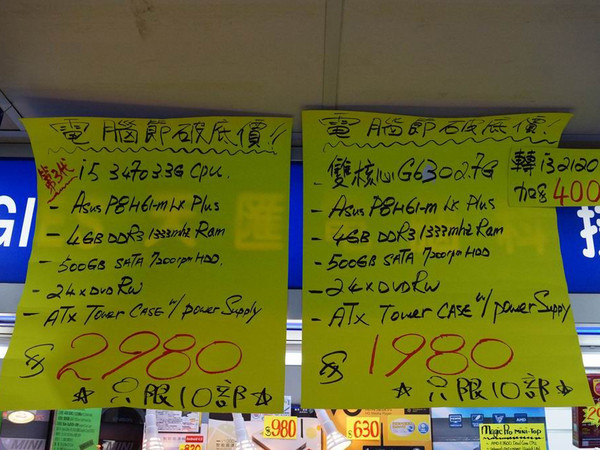 電腦節破底價!!
第3代 i5 3470 3.3G CPU.
- Asus P8H61-m LX Plus
- 4GB DDR3 1333mhz Ram
- 500GB SATA 7200rpm HDD.
- 24x DVD RW
- ATX Tower CASE w/ power Supply
$2980
☆只限10部☆
電腦節破底價!!
- 雙核心G630 2.7G
- Asus P8H61-m LX Plus
- 4GB DDR3 1333mhz Ram
- 500GB SATA 7200rpm HDD
- 24x DVD RW
- ATX Tower CASE w/ power Supply
$1980
☆只限10部☆
轉i3 2120
加$400
GI
匯
$980
$630
MINI
MINI
AMD
Magic Pro mini-Top